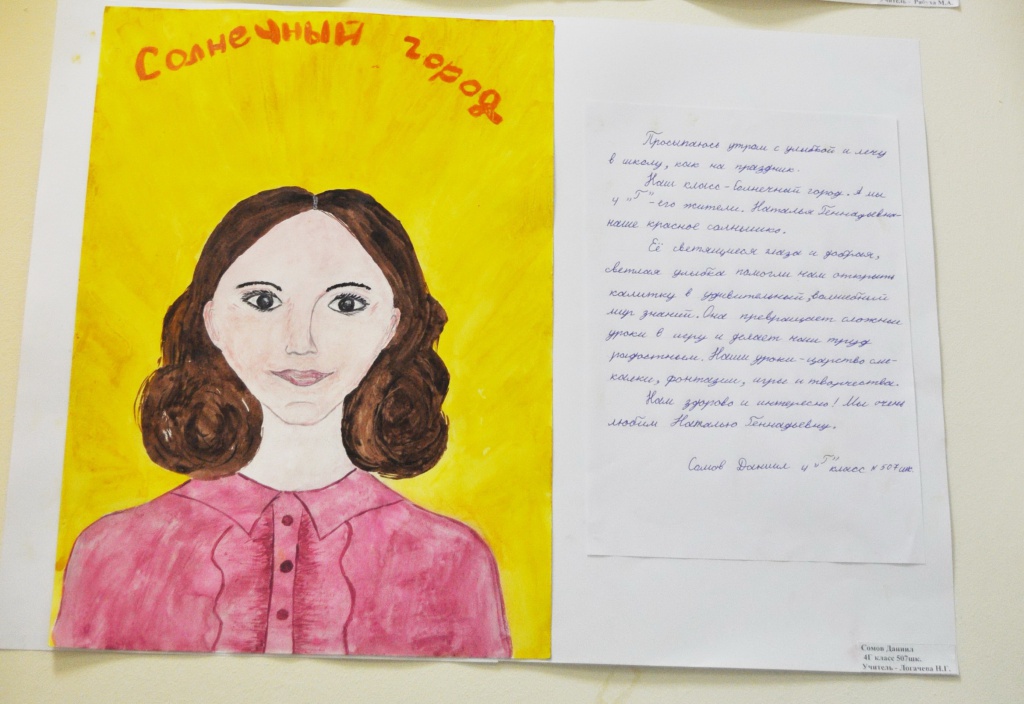 Учитель - Рябова М.А.
Солнечный город
Просыпаюсь утром с улыбкой и лечу
в школу, как на праздник.
Наш класс-Солнечный город. А мы
4 "Г"-его жители. Наталья Геннадьевна-
наше красное солнышко.
Её светящиеся глаза и добрая,
светлая улыбка помогли нам открыть
калитку в удивительный, волшебный
мир знаний. Она превращает сложные
уроки в игру и делает наш труд
радостным. Наши уроки-царство сме-
калки, фантазии, игры и творчества.
Нам здорово и интересно! Мы очень
любим Наталью Геннадьевну.
Сомов Даниил 4 "Г" класс 507 шк.
Сомов Даниил
4Г класс 507шк.
Учитель - Логачева Н.Г.